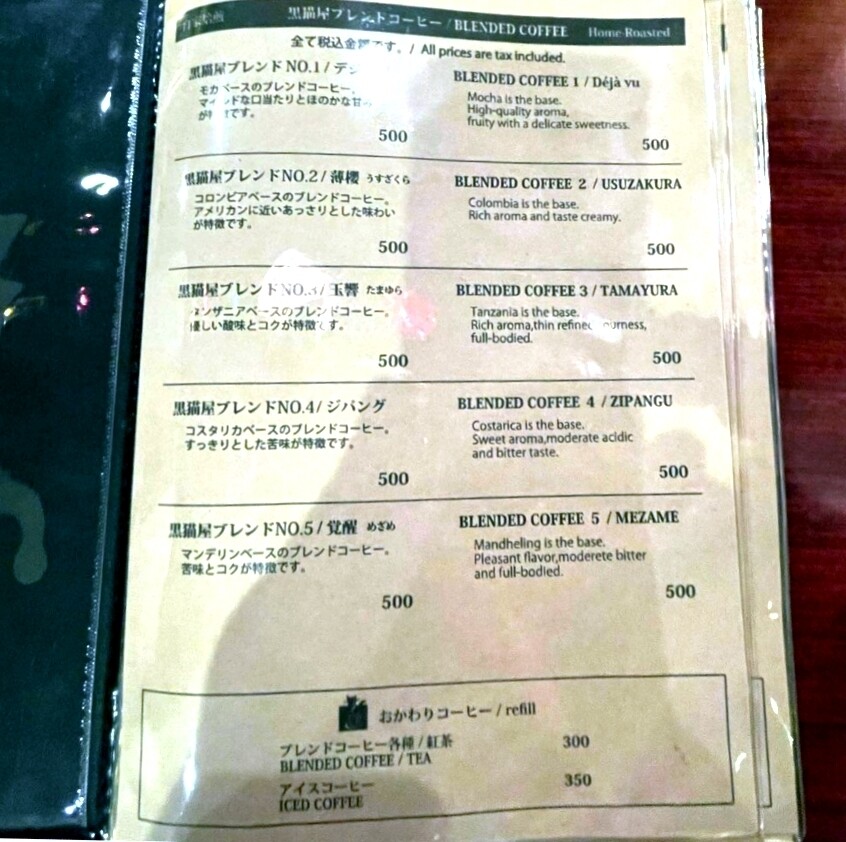 黒猫屋ブレンドコーヒー / BLENDED COFFEE Home Roasted
全て税込金額です。/ All prices are tax included.
黒猫屋ブレンド NO.1 / デジ
モカベースのブレンドコーヒー。
マイルドな口当たりとほのかな甘
が です。
500
BLENDED COFFEE 1 / Déjà vu
Mocha is the base.
High-quality aroma,
fruity with a delicate sweetness.
500
黒猫屋ブレンドNO.2 / 薄櫻 うすざくら
コロンビアベースのブレンドコーヒー。
アメリカンに近いあっさりとした味わい
が特徴です。
500
BLENDED COFFEE 2 / USUZAKURA
Colombia is the base.
Rich aroma and taste creamy.
500
黒猫屋ブレンドNO.3 / 玉響 たまゆら
タンザニアベースのブレンドコーヒー。
優しい酸味とコクが特徴です。
500
BLENDED COFFEE 3 / TAMAYURA
Tanzania is the base.
Rich aroma,thin refined
full-bodied.
500
黒猫屋ブレンドNO.4 / ジパング
コスタリカベースのブレンドコーヒー。
すっきりとした苦味が特徴です。
500
BLENDED COFFEE 4 / ZIPANGU
Costarica is the base.
Sweet aroma,moderate acidic
and bitter taste.
500
黒猫屋ブレンドNO.5 / 覚醒 めざめ
マンデリンベースのブレンドコーヒー。
苦味とコクが特徴です。
500
BLENDED COFFEE 5 / MEZAME
Mandheling is the base.
Pleasant flavor,moderete bitter
and full-bodied.
500
おかわりコーヒー / refill
ブレンドコーヒー各種 / 紅茶 300
BLENDED COFFEE / TEA
アイスコーヒー 350
ICED COFFEE